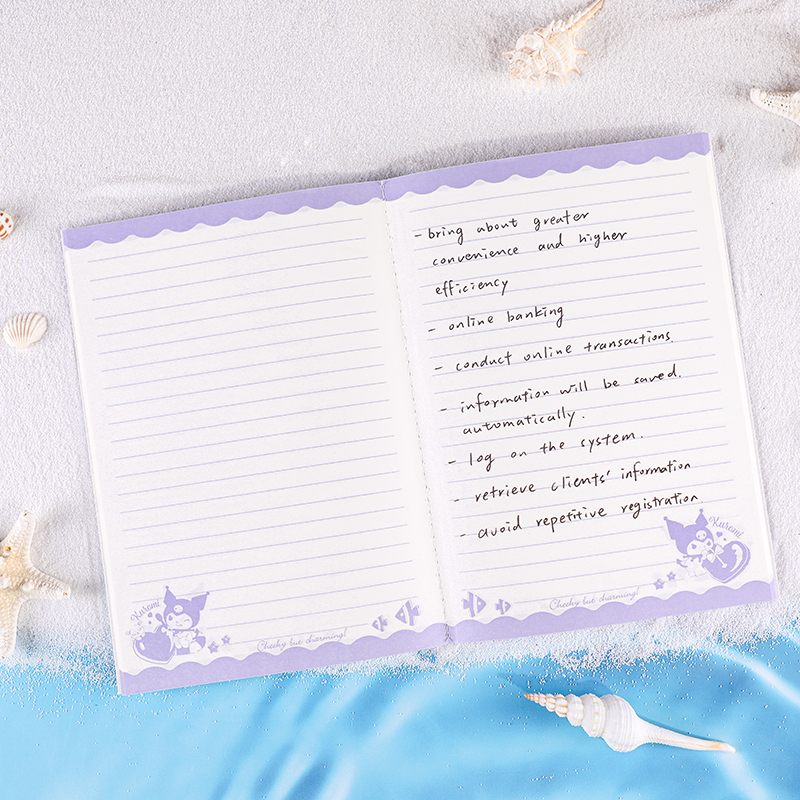 - bring about greater
convenience and higher
efficiency
- online banking
- conduct online transactions.
- information will be saved.
automatically.
- log on the system.
- retrieve clients' information
- avoid repetitive registration.
Kuromi
Cheeky but charming!
Kuromi
Cheeky but charming!